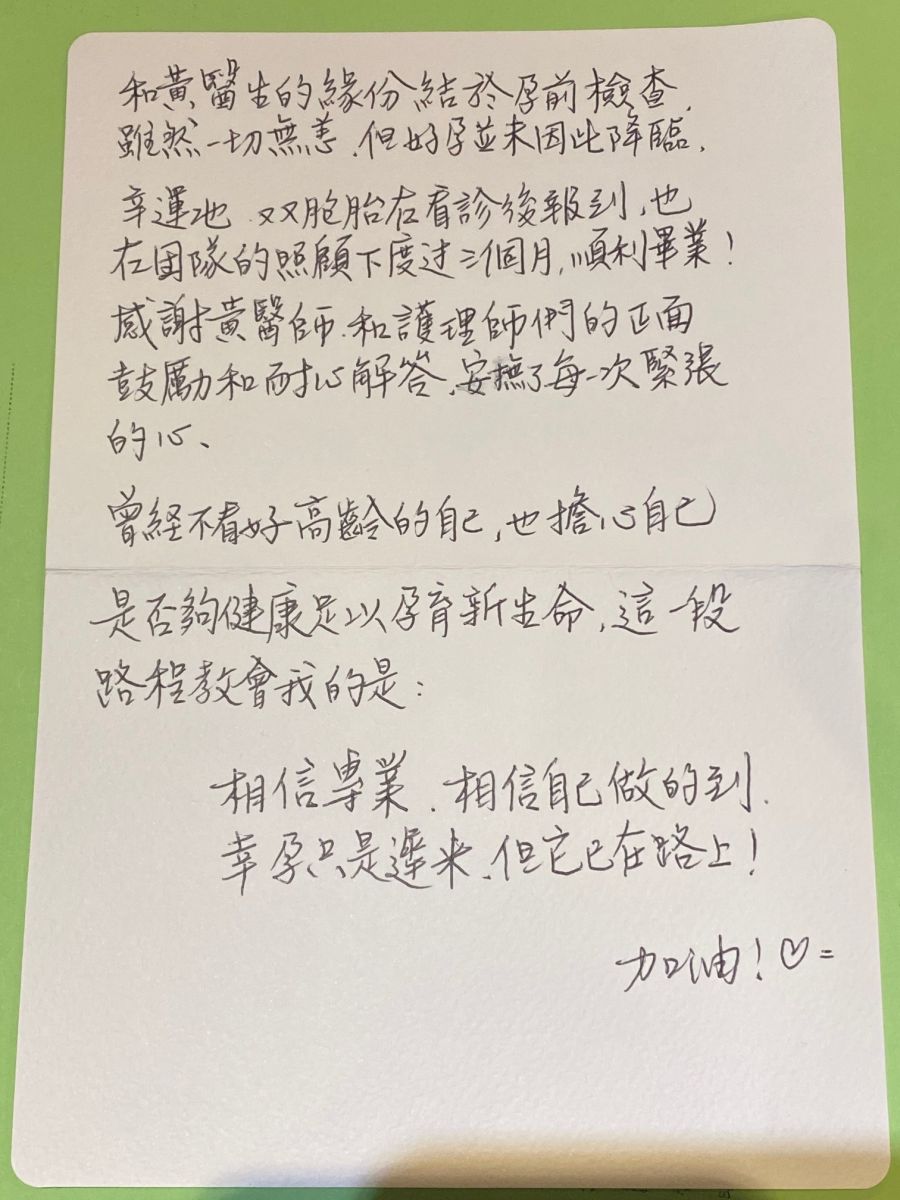 和黃醫生的緣份結於孕前檢查,
雖然一切無恙、但好孕並未因此降臨.
幸運地 双双胞胎在看診後報到,也
在团隊的照顧下度过三個月,順利畢業!
感謝黃醫師、和護理師們的正面
鼓勵和耐心解答、安撫了每一次緊張
的心、
曾経不看好高齡的自己,也擔心自己
是否夠健康足以孕育新生命,這一段
路程教會我的是:
相信專業、相信自己做的到.
幸孕只是遲来、但它已在路上!
加油!♡=